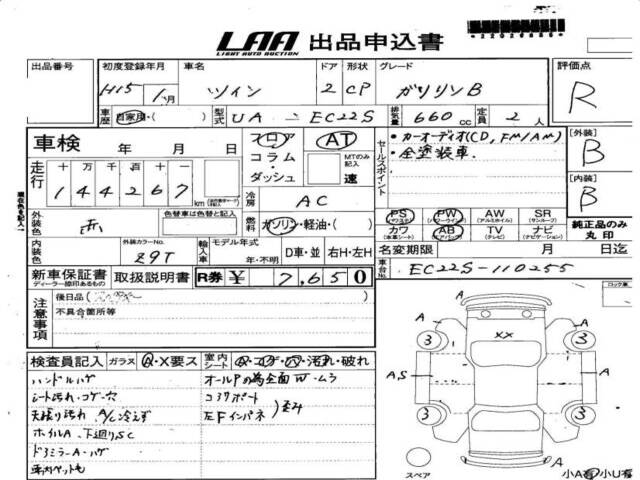 LAA 出品申込書
LIGHT AUTO AUCTION
出品番号 初度登録年月 車名 ドア 形状 グレード 評価点
H15 1月 ツイン 2 CP ガソリンB R
車歴 自家庭・( ) 型式 UA - EC22S 排気量 660 cc 定員 2 人
車検 年 月 日 フロア AT
コラム・ダッシュ MTのみ記入 速
走行 十 万 千 百 十 一
144267 km
冷房 AC
セールスポイント
・カーオーディオ(CD, FM/AM)
・全塗装車.
[外装] B
[内装] B
現在色を記入
外装色 赤 色替車は色替と記入
燃料 ガソリン・軽油・( )
PS PW AW SR
カワ AB TV ナビ
純正品のみ丸印
内装色 外装カラーNo. Z9T 輸入車 モデル年式 年・不明 D車・並 右H・左H
名変期限 月 日迄
新車保証書 取扱説明書 R券 ¥ 7,650
ディーラー捺印あるもの
車台No. EC22S-110255
注意事項 後日品( )
不具合箇所等
検査員記入 ガラス A・X要ス 室内シート A・コゲ・穴・汚れ・破れ
ハンドルハゲ オールPの為全面W・ムラ
シート汚れ・コゲ・穴 コアサポート
天張り汚れ A/C冷えず 左Fインパネ 歪み
ホイルA 下廻りSC
ドアミラーA・ハゲ
車内ペット毛
A A
3 XX 3
A,S A
3 3
A
スペア 小A有 小U有